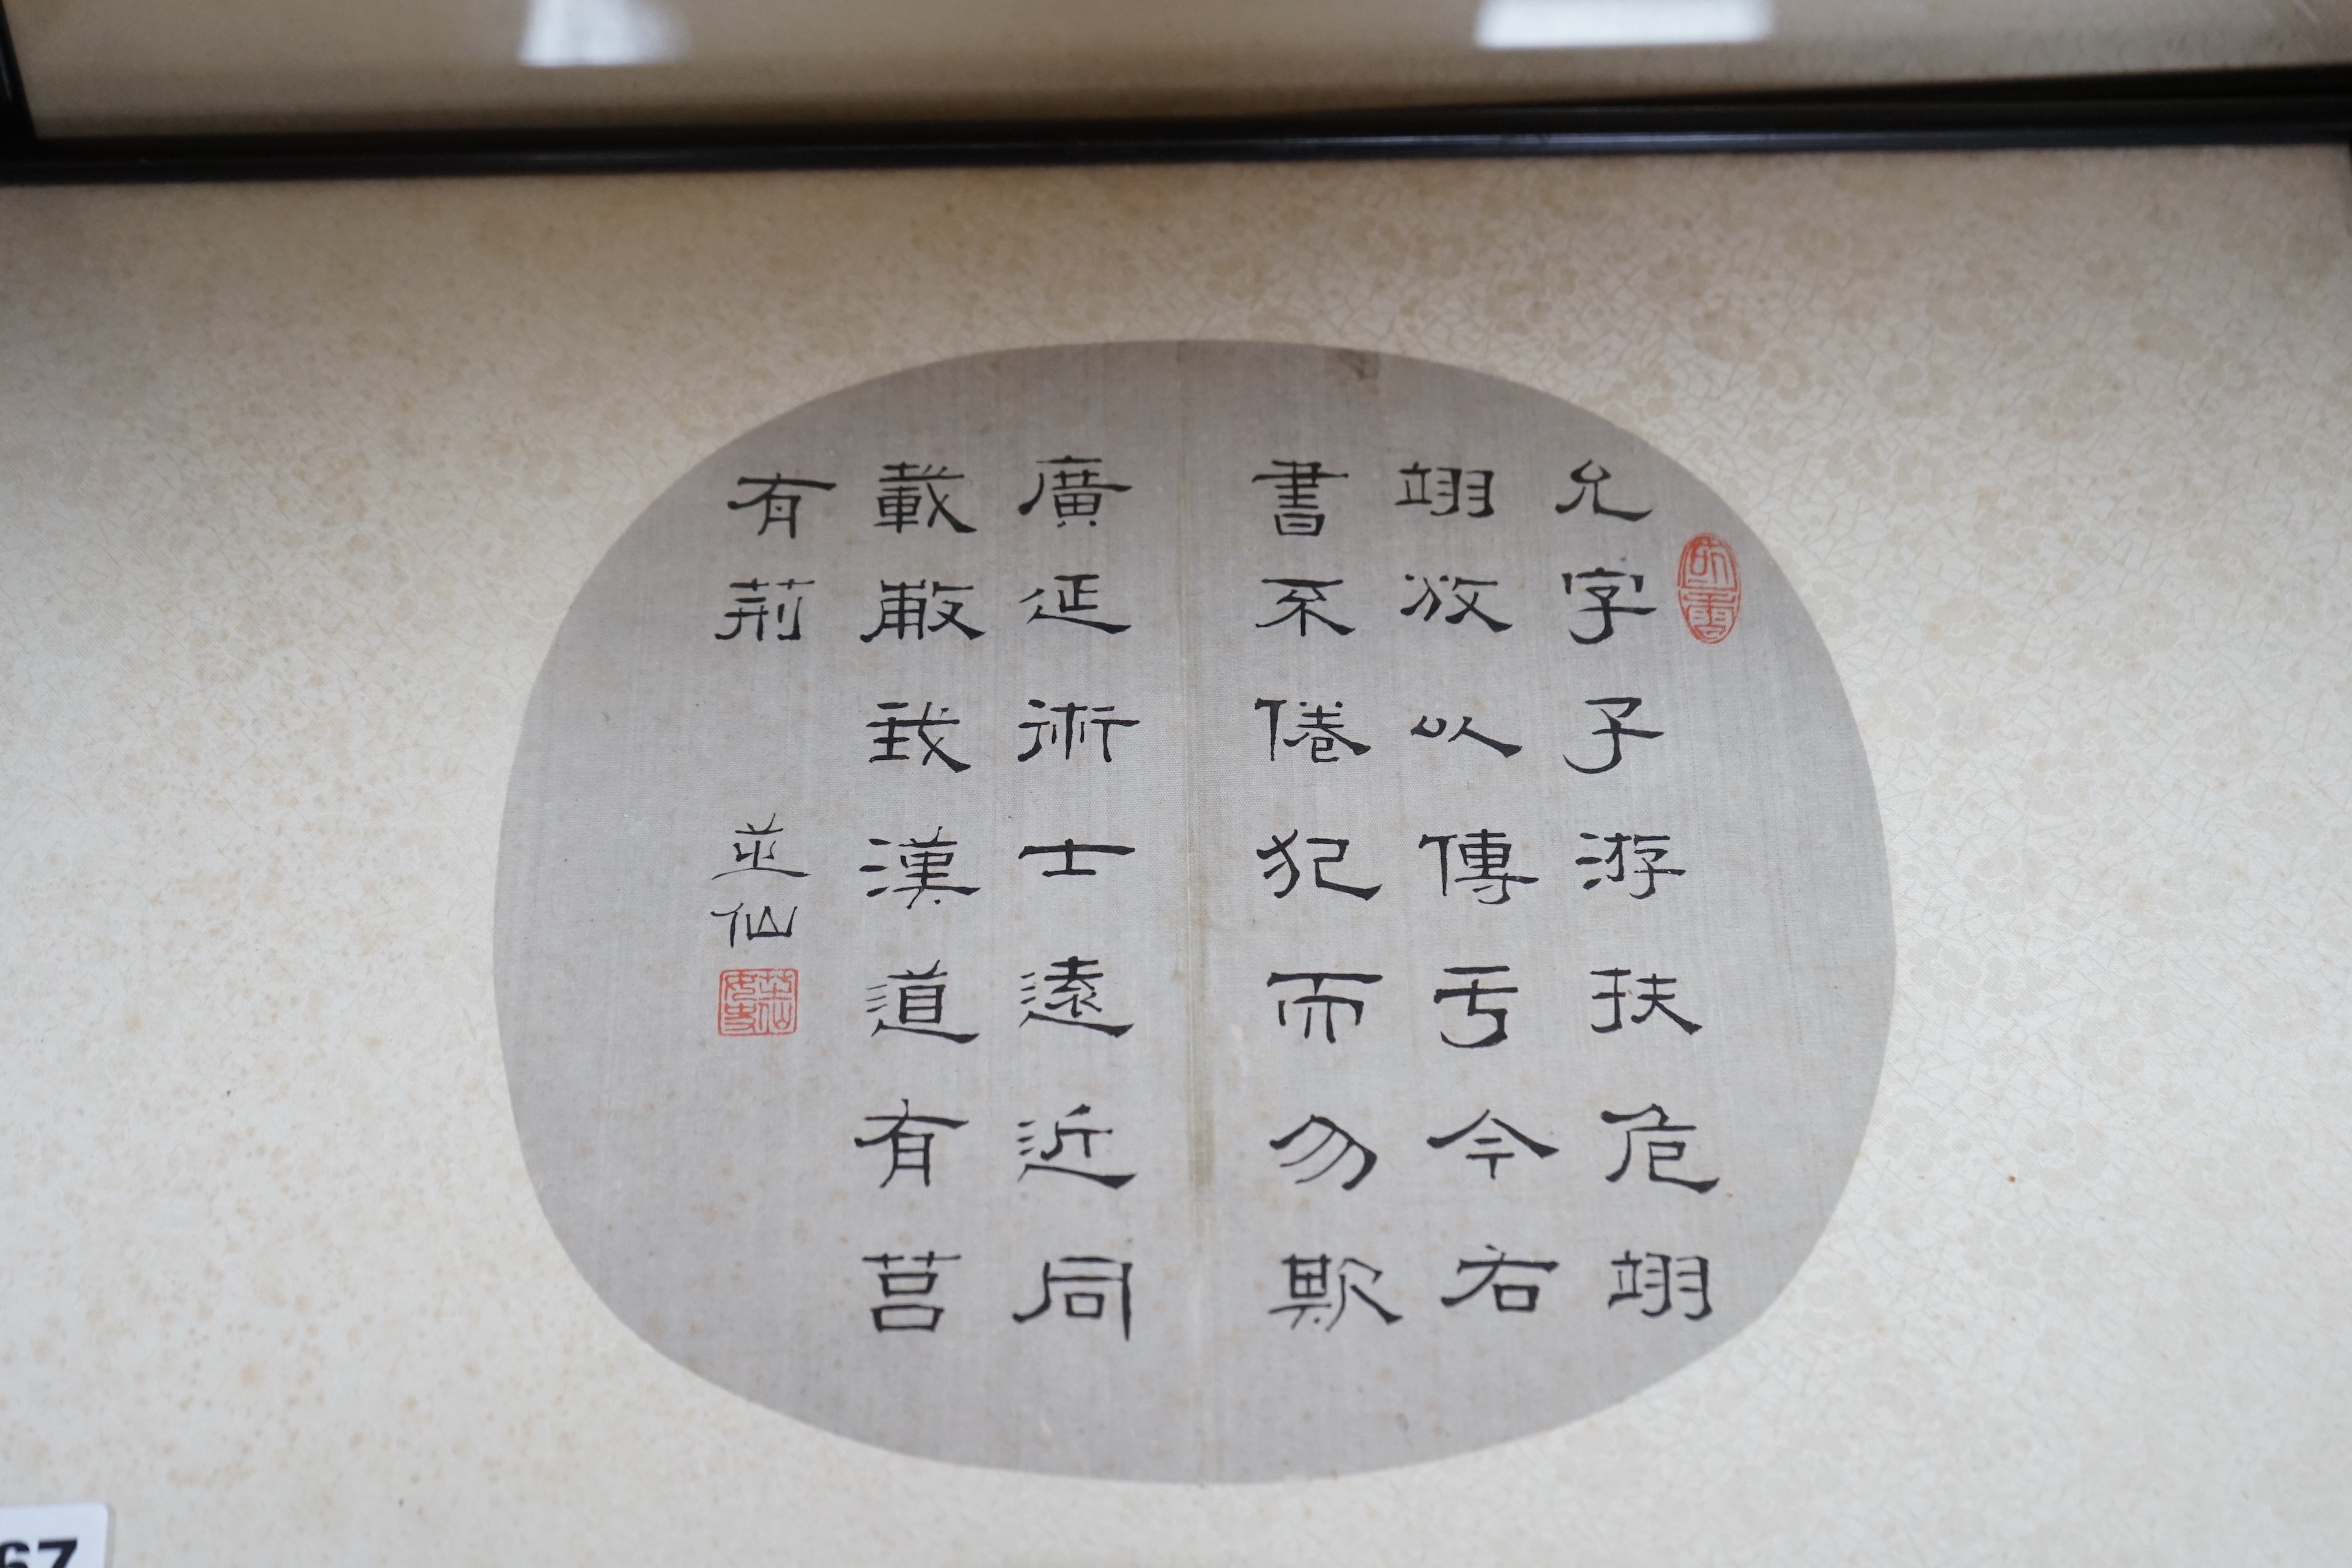 允字子游扶危翊
翊放以傳亐今右
書不倦犯而勿欺
廣延術士遠近同
載敝我漢道有莒
有荊
並仙
67